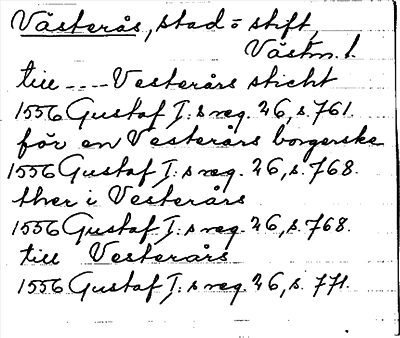 Västerås, stad o stift,
Västm. l.
till ---- Vesterårs sticht
1556 Gustaf I:s reg. 26, s. 761.
för en Vesterårs borgerske
1556 Gustaf I:s reg. 26, s. 768.
ther i Vesterårs
1556 Gustaf I:s reg. 26, s. 768.
till Vesterårs
1556 Gustaf I:s reg. 26, s. 771.